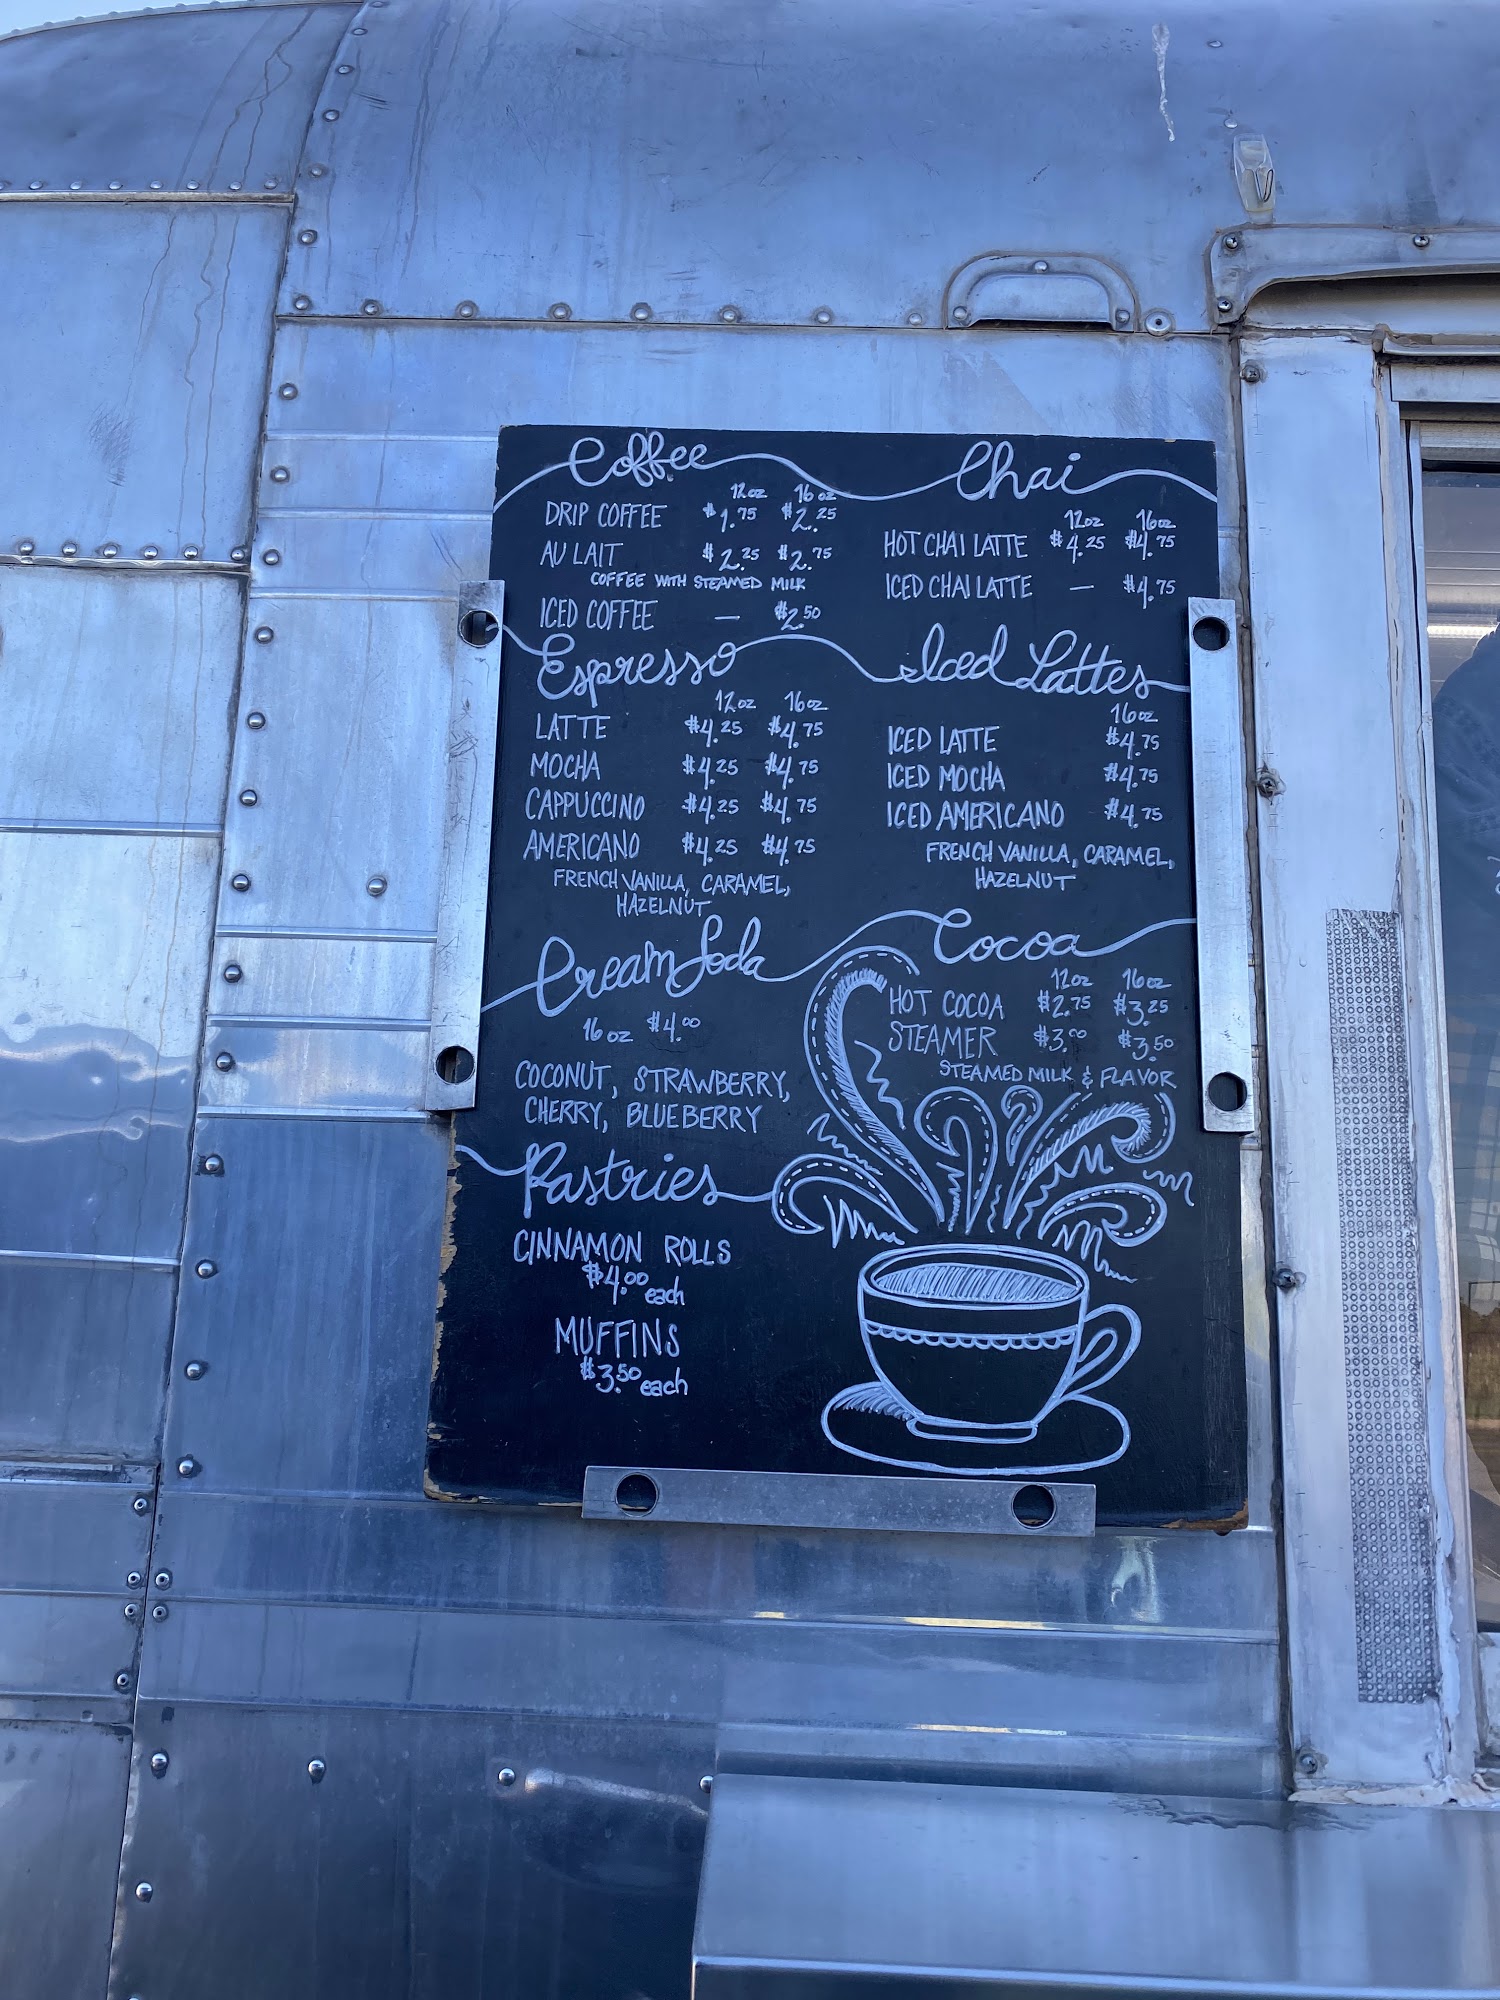 Coffee
12oz 16oz
DRIP COFFEE $1.75 $2.25
AU LAIT $2.25 $2.75
COFFEE WITH STEAMED MILK
ICED COFFEE — $2.50
Chai
12oz 16oz
HOT CHAI LATTE $4.25 $4.75
ICED CHAI LATTE — $4.75
Espresso
12oz 16oz
LATTE $4.25 $4.75
MOCHA $4.25 $4.75
CAPPUCCINO $4.25 $4.75
AMERICANO $4.25 $4.75
FRENCH VANILLA, CARAMEL,
HAZELNUT
Iced Lattes
16oz
ICED LATTE $4.75
ICED MOCHA $4.75
ICED AMERICANO $4.75
FRENCH VANILLA, CARAMEL,
HAZELNUT
Cream Soda
16oz $4.00
COCONUT, STRAWBERRY,
CHERRY, BLUEBERRY
Cocoa
12oz 16oz
HOT COCOA $2.75 $3.25
STEAMER $3.00 $3.50
STEAMED MILK & FLAVOR
Pastries
CINNAMON ROLLS
$4.00 each
MUFFINS
$3.50 each